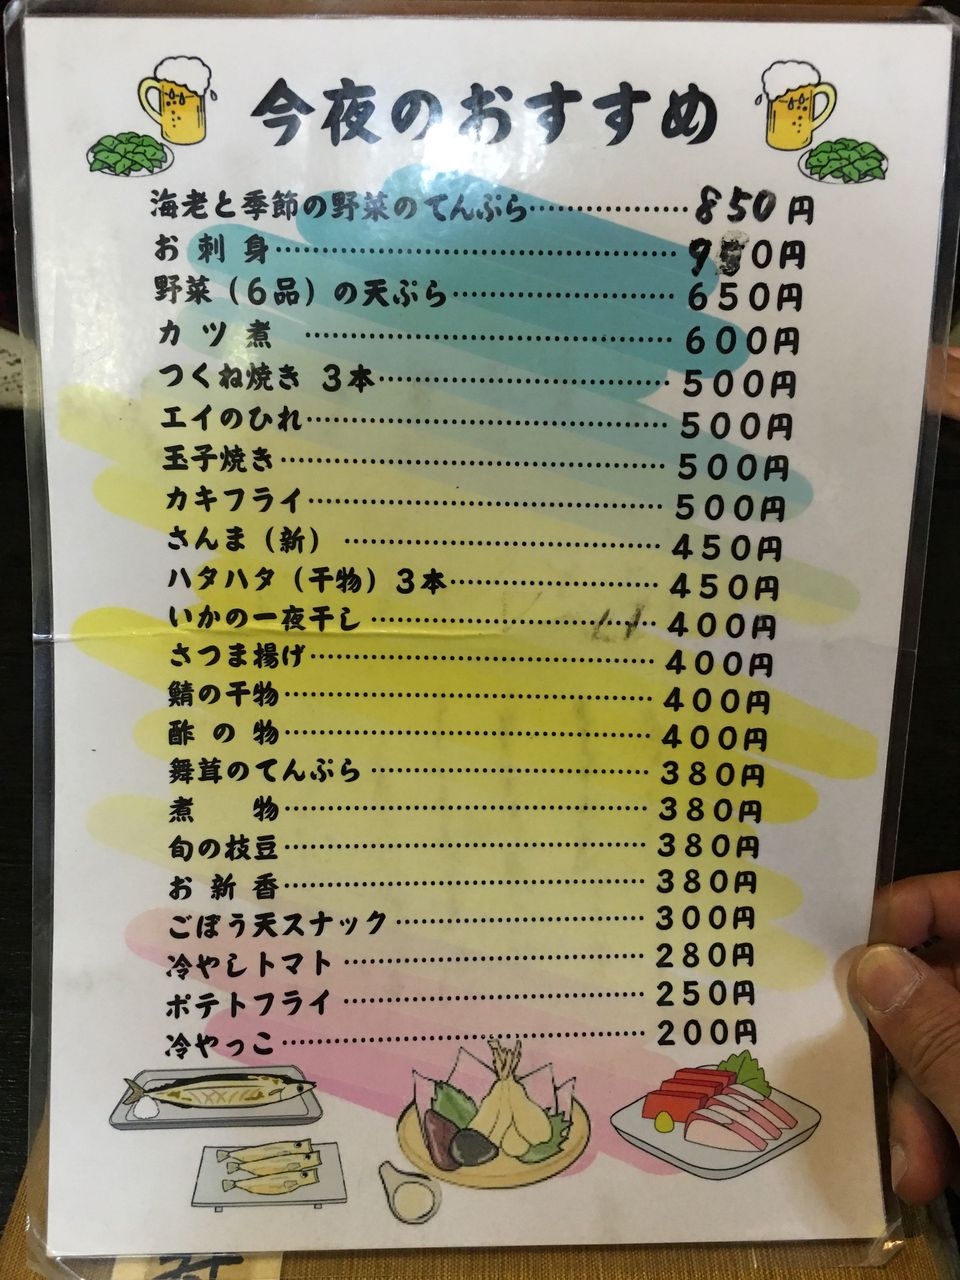 今夜のおすすめ
海老と季節の野菜のてんぷら………………850円
お刺身………………………………………950円
野菜（6品）の天ぷら………………………650円
カツ煮 ………………………………………600円
つくね焼き 3本……………………………500円
エイのひれ…………………………………500円
玉子焼き……………………………………500円
カキフライ…………………………………500円
さんま（新） ………………………………450円
ハタハタ（干物）3本………………………450円
いかの一夜干し ……………………………400円
さつま揚げ…………………………………400円
鯖の干物……………………………………400円
酢の物………………………………………400円
舞茸のてんぷら ……………………………380円
煮　　物……………………………………380円
旬の枝豆……………………………………380円
お新香………………………………………380円
ごぼう天スナック…………………………300円
冷やしトマト ………………………………280円
ポテトフライ ………………………………250円
冷やっこ……………………………………200円